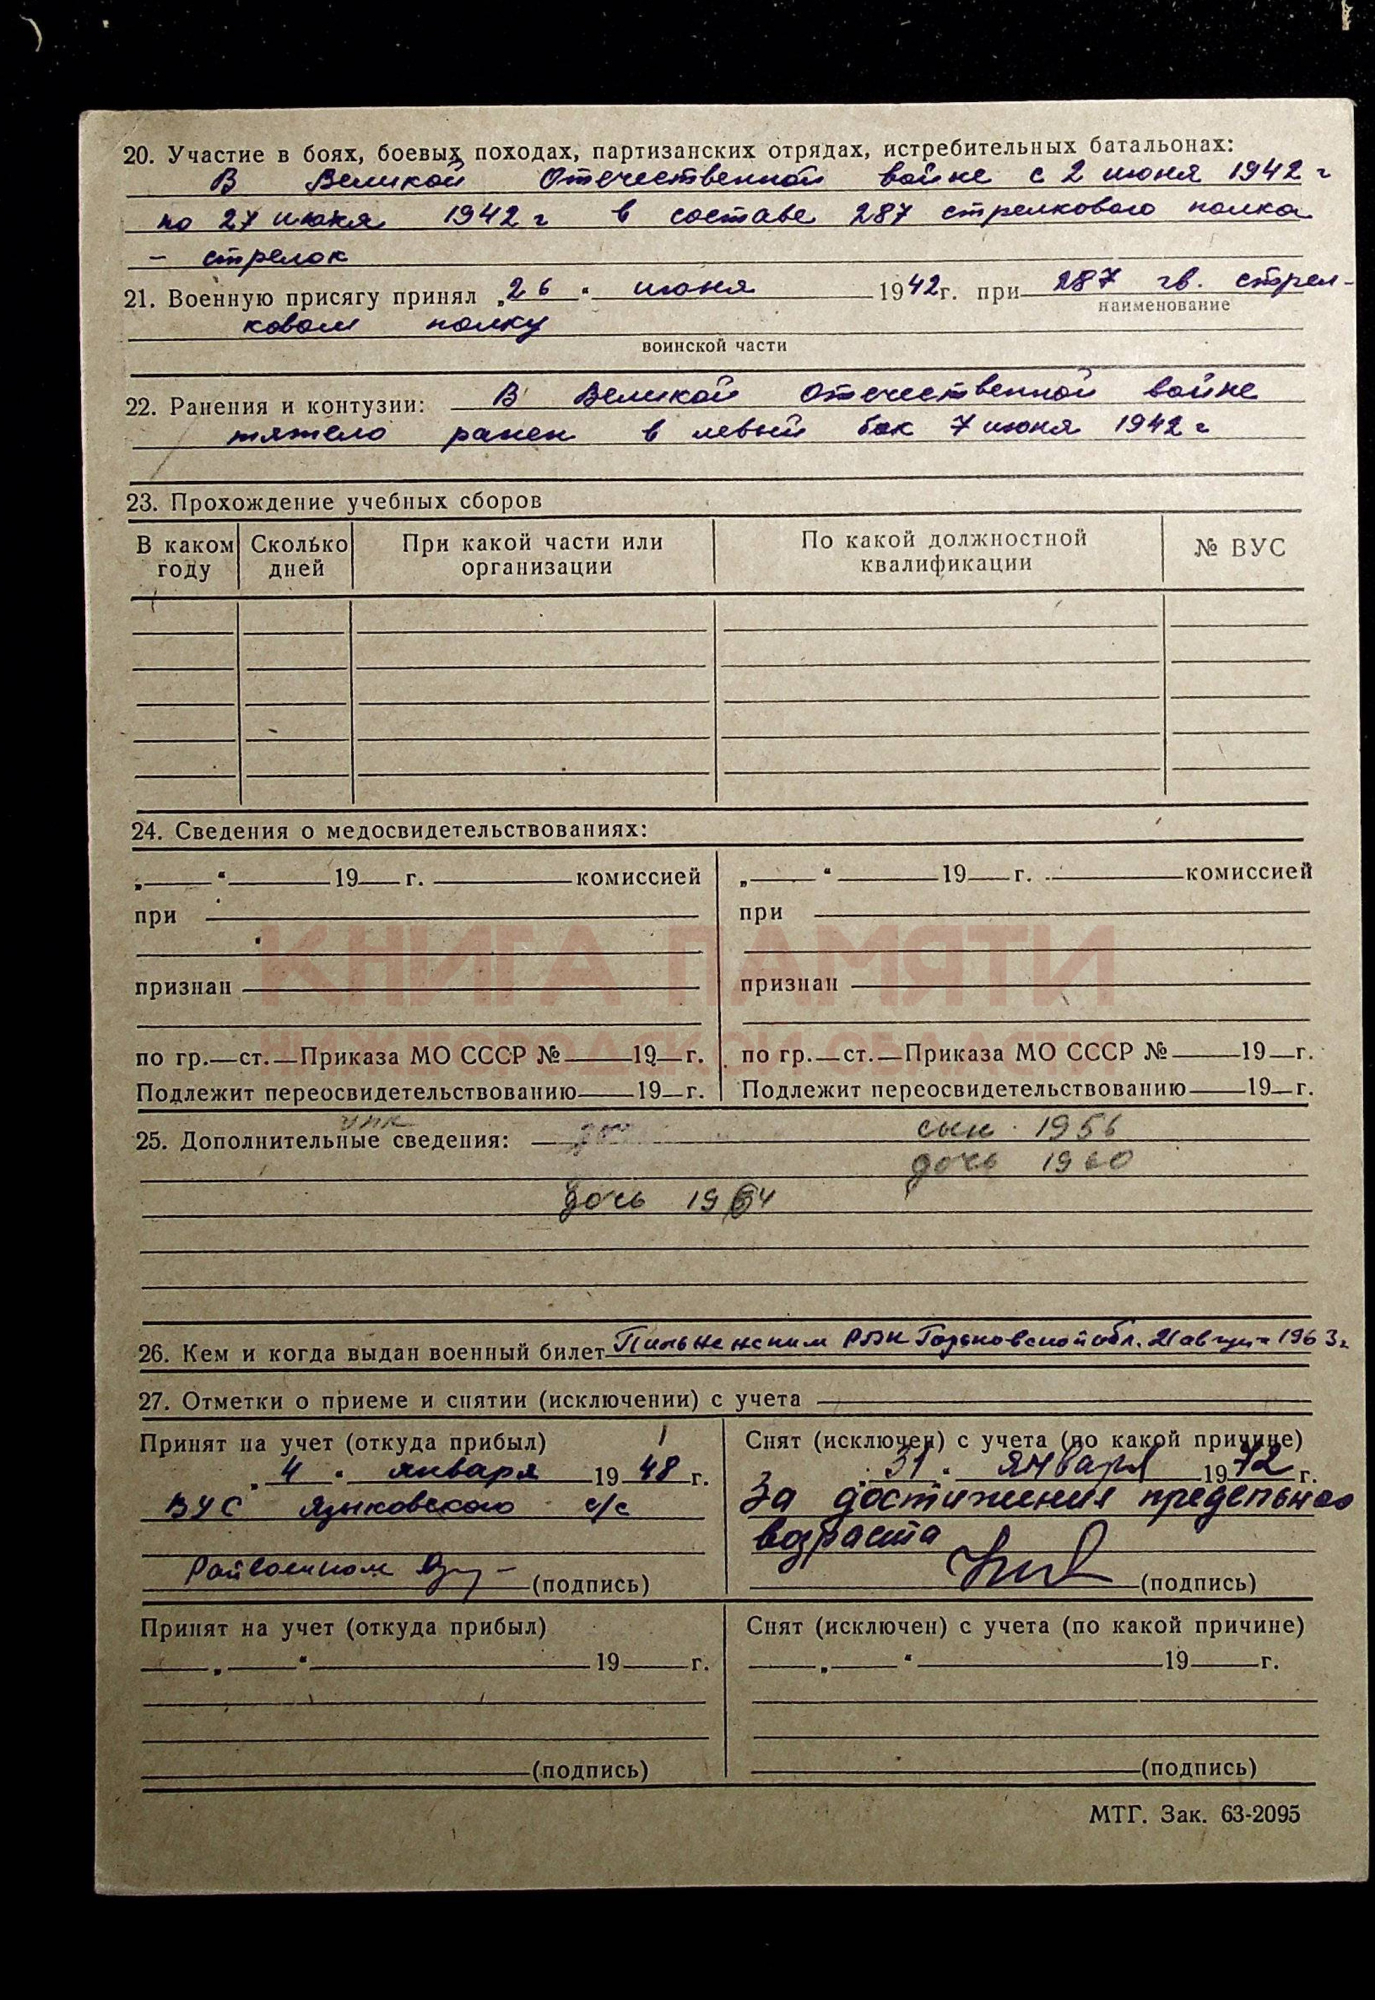 20. Участие в боях, боевых походах, партизанских отрядах, истребительных батальонах:
В Великой Отечественной войне с 2 июня 1942 г
по 27 июня 1942 г в составе 287 стрелкового полка
– стрелок
21. Военную присягу принял „26“ июня 1942г. при 287 гв. стрел-
наименование
ковом полку
воинской части
22. Ранения и контузии: В Великой Отечественной войне
тяжело ранен в левый бок 7 июня 1942 г
23. Прохождение учебных сборов
В каком году Сколько дней При какой части или организации По какой должностной квалификации № ВУС
24. Сведения о медосвидетельствованиях:
„ “ 19 г. комиссией „ “ 19 г. комиссией
при при
КНИГА ПАМЯТИ
признан признан
НИЖЕГОРОДСКОЙ ОБЛАСТИ
по гр. ст. Приказа МО СССР № 19 г. по гр. ст. Приказа МО СССР № 19 г.
Подлежит переосвидетельствованию 19 г. Подлежит переосвидетельствованию 19 г.
25. Дополнительные сведения: сын 1956
дочь 1960
дочь 1964
26. Кем и когда выдан военный билет Пильненским РВК Горьковской обл. 21 августа 1963 г.
27. Отметки о приеме и снятии (исключении) с учета
Принят на учет (откуда прибыл) Снят (исключен) с учета (по какой причине)
„4“ января 1948 г. „31“ января 1972 г.
ВУС Языковского с/с За достижения предельного
возраста
Райвоенком (подпись) (подпись)
Принят на учет (откуда прибыл) Снят (исключен) с учета (по какой причине)
„ “ 19 г. „ “ 19 г.
(подпись) (подпись)
МТГ. Зак. 63-2095